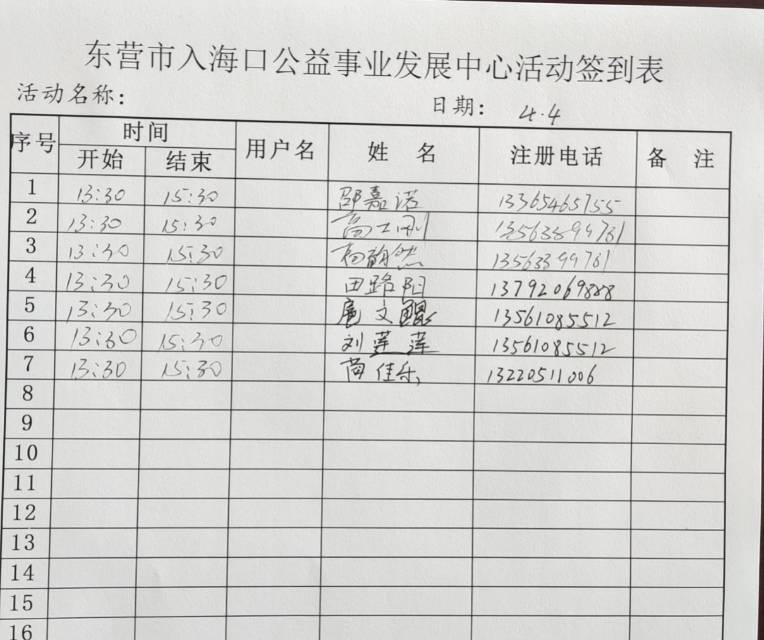 东营市入海口公益事业发展中心活动签到表
活动名称： 日期： 4.4
序号 时间 用户名 姓 名 注册电话 备 注
开始 结束
1 13:30 15:30 邵嘉诺 13365465755
2 13:30 15:30 高士刚 13563899781
3 13:30 15:30 杨韵然 13563899781
4 13:30 15:30 田路阳 13792069888
5 13:30 15:30 扈文鲲 13561085512
6 13:30 15:30 刘莲莲 13561085512
7 13:30 15:30 苟佳乐 13220511006
8
9
10
11
12
13
14
15
16